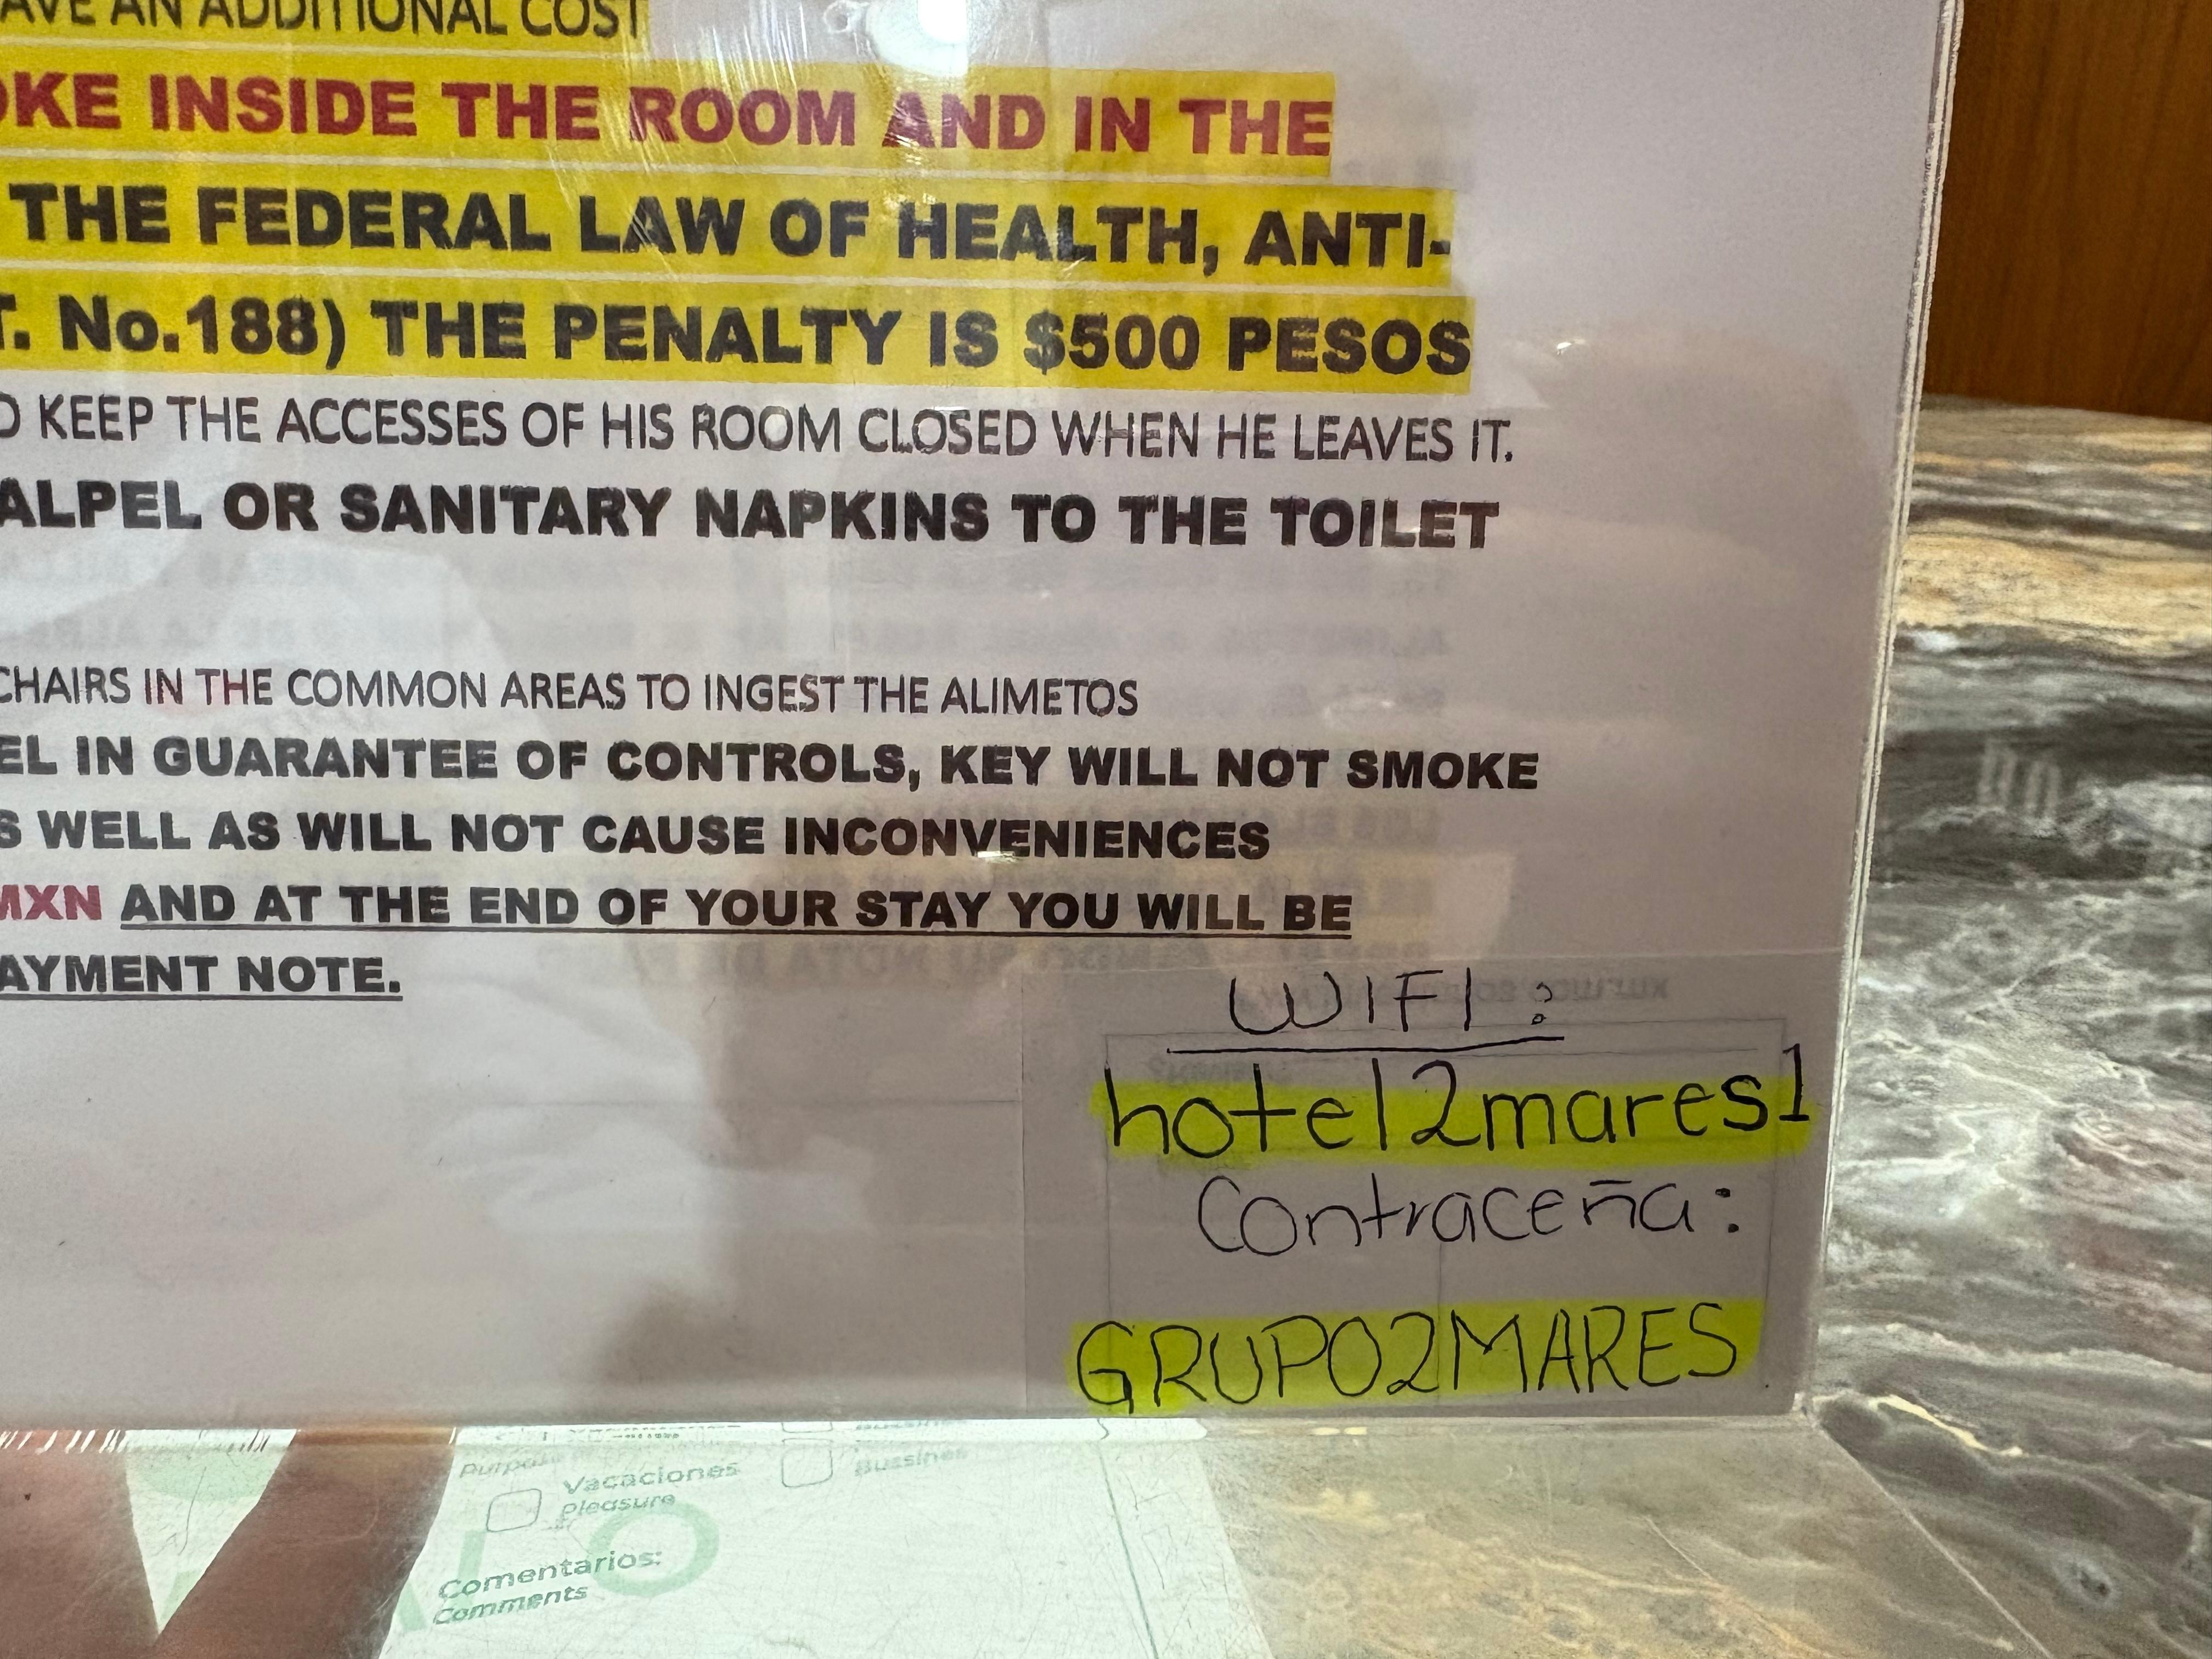 AVE AN ADDITIONAL COST
OKE INSIDE THE ROOM AND IN THE
THE FEDERAL LAW OF HEALTH, ANTI-
T. No.188) THE PENALTY IS $500 PESOS
O KEEP THE ACCESSES OF HIS ROOM CLOSED WHEN HE LEAVES IT.
ALPEL OR SANITARY NAPKINS TO THE TOILET
CHAIRS IN THE COMMON AREAS TO INGEST THE ALIMETOS
EL IN GUARANTEE OF CONTROLS, KEY WILL NOT SMOKE
S WELL AS WILL NOT CAUSE INCONVENIENCES
MXN AND AT THE END OF YOUR STAY YOU WILL BE
AYMENT NOTE.
WIFI:
hotel2mares1
Contraceña:
GRUPO2MARES
Vacaciones
Pleasure
Bussines
Comentarios:
Comments